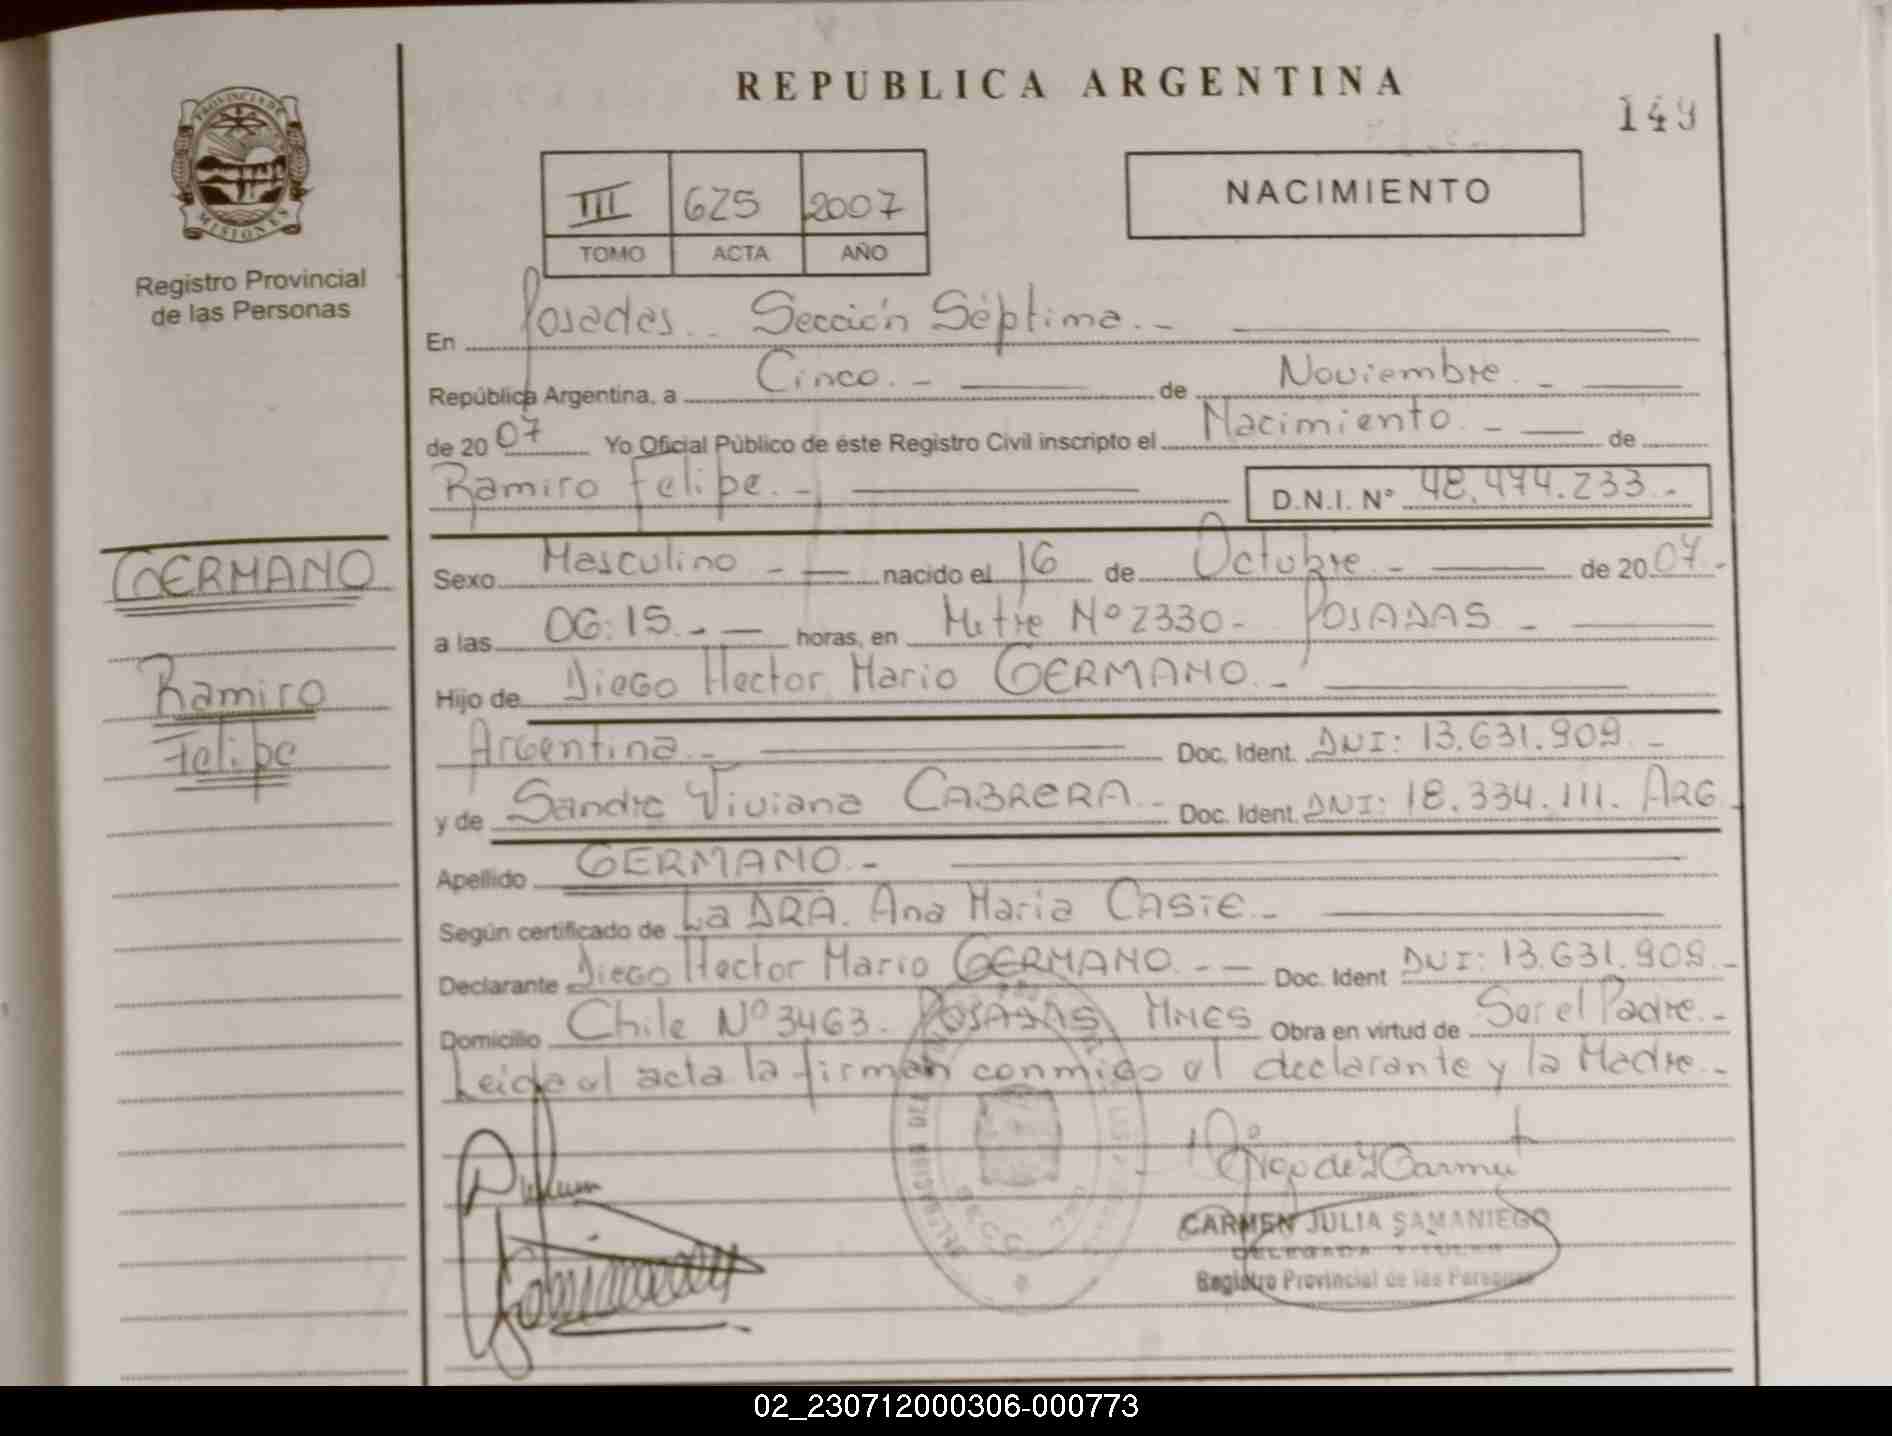 REPUBLICA ARGENTINA
149
PROVINCIA DE
MISIONES
Registro Provincial
de las Personas
III 625 2007
TOMO ACTA AÑO
NACIMIENTO
En Posadas.. Sección Séptima.-
República Argentina, a Cinco.- de Noviembre.-
de 2007 Yo Oficial Público de éste Registro Civil inscripto el Nacimiento.- de
Ramiro Felipe.- D.N.I. N° 48.474.233.-
GERMANO
Ramiro
Felipe
Sexo Masculino - nacido el 16 de Octubre.- de 2007.-
a las 06:15.- horas, en Mitre Nº 2330- POSADAS.-
Hijo de Diego Hector Mario GERMANO.-
Argentina.- Doc. Ident. DNI: 13.631.909.-
y de Sandra Viviana CABRERA.- Doc. Ident. DNI: 18.334.111. ARG.
Apellido GERMANO.-
Según certificado de La DRA. Ana Maria CASIE.-
Declarante Diego Hector Mario GERMANO.-- Doc. Ident DNI: 13.631.909.-
Domicilio Chile Nº 3463. POSADAS MNES Obra en virtud de Ser el Padre.-
Leida el acta la firman conmigo el declarante y la Madre.-
CARMEN JULIA SAMANIEGO
DELEGADA TITULAR
Registro Provincial de las Personas
02_230712000306-000773